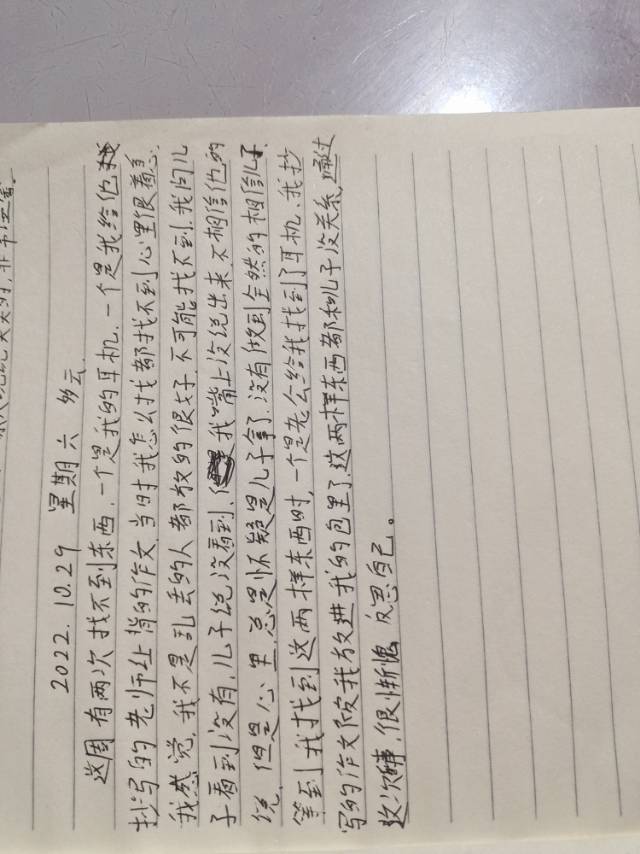 2022.10.29 星期六 多云
这周有两次找不到东西,一个是我的耳机,一个是我给他
抄写的老师让背的作文,当时我怎么找都找不到心里很着急.
我感觉,我不是乱丢的人都放的很好,不可能找不到,我问儿
子看到没有,儿子说没看到,我嘴上没说出来不相信他的
说,但是心里总是怀疑是儿子拿了.没有做到全然的相信儿子.
等到我找到这两样东西时,一个是老公给我找到了耳机、我抄
写的作文被我放进我的包里了,这两样东西都和儿子没关系,通过
这次事,很惭愧,反思自己。